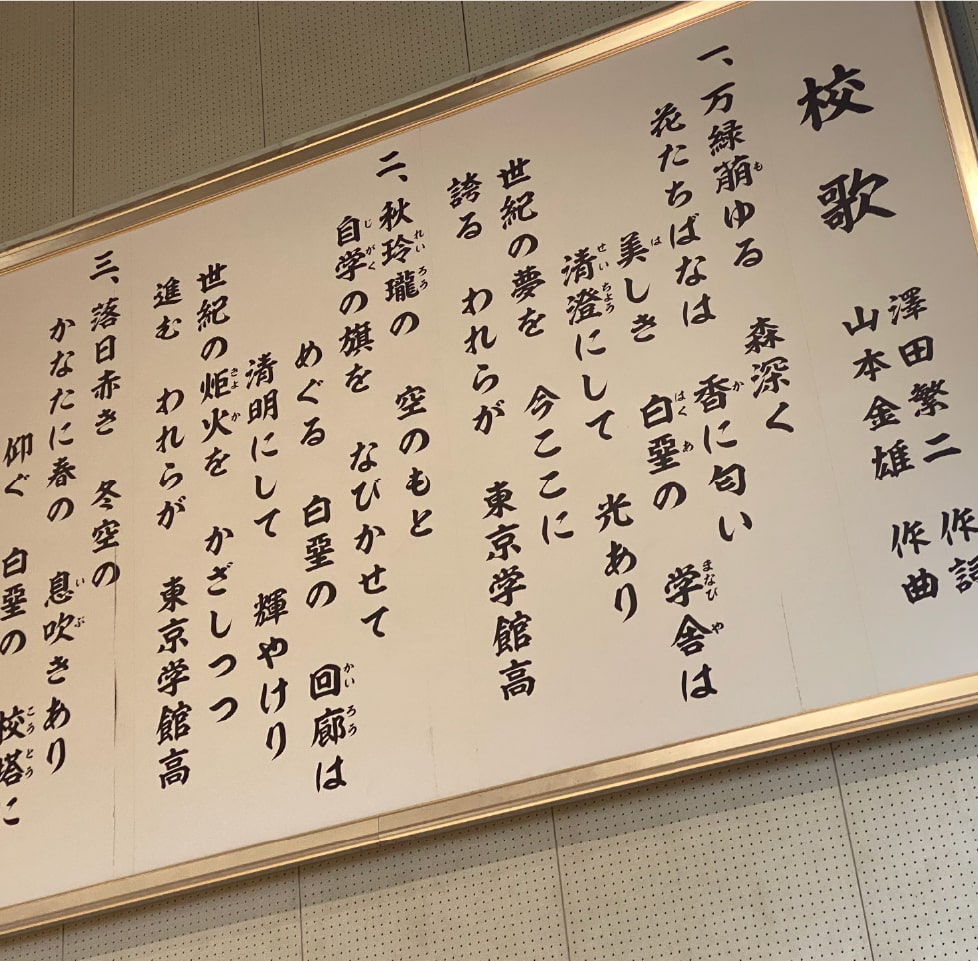 校歌
澤田繁二 作詞
山本金雄 作曲
も
一、万緑萌ゆる 森深く
か
花たちばなは 香に匂い
は はく あ まなび や
美しき 白堊の 学舎は
せい ちよう
清澄にして 光あり
世紀の夢を 今ここに
誇る われらが 東京学館高
れい ろう
二、秋玲瓏の 空のもと
じ がく
自学の旗を なびかせて
かい ろう
めぐる 白堊の 回廊は
清明にして 輝やけり
きよ か
世紀の炬火を かざしつつ
進む われらが 東京学館高
三、落日赤き 冬空の
い ぶ
かなたに春の 息吹きあり
こう とう
仰ぐ 白堊の 校塔